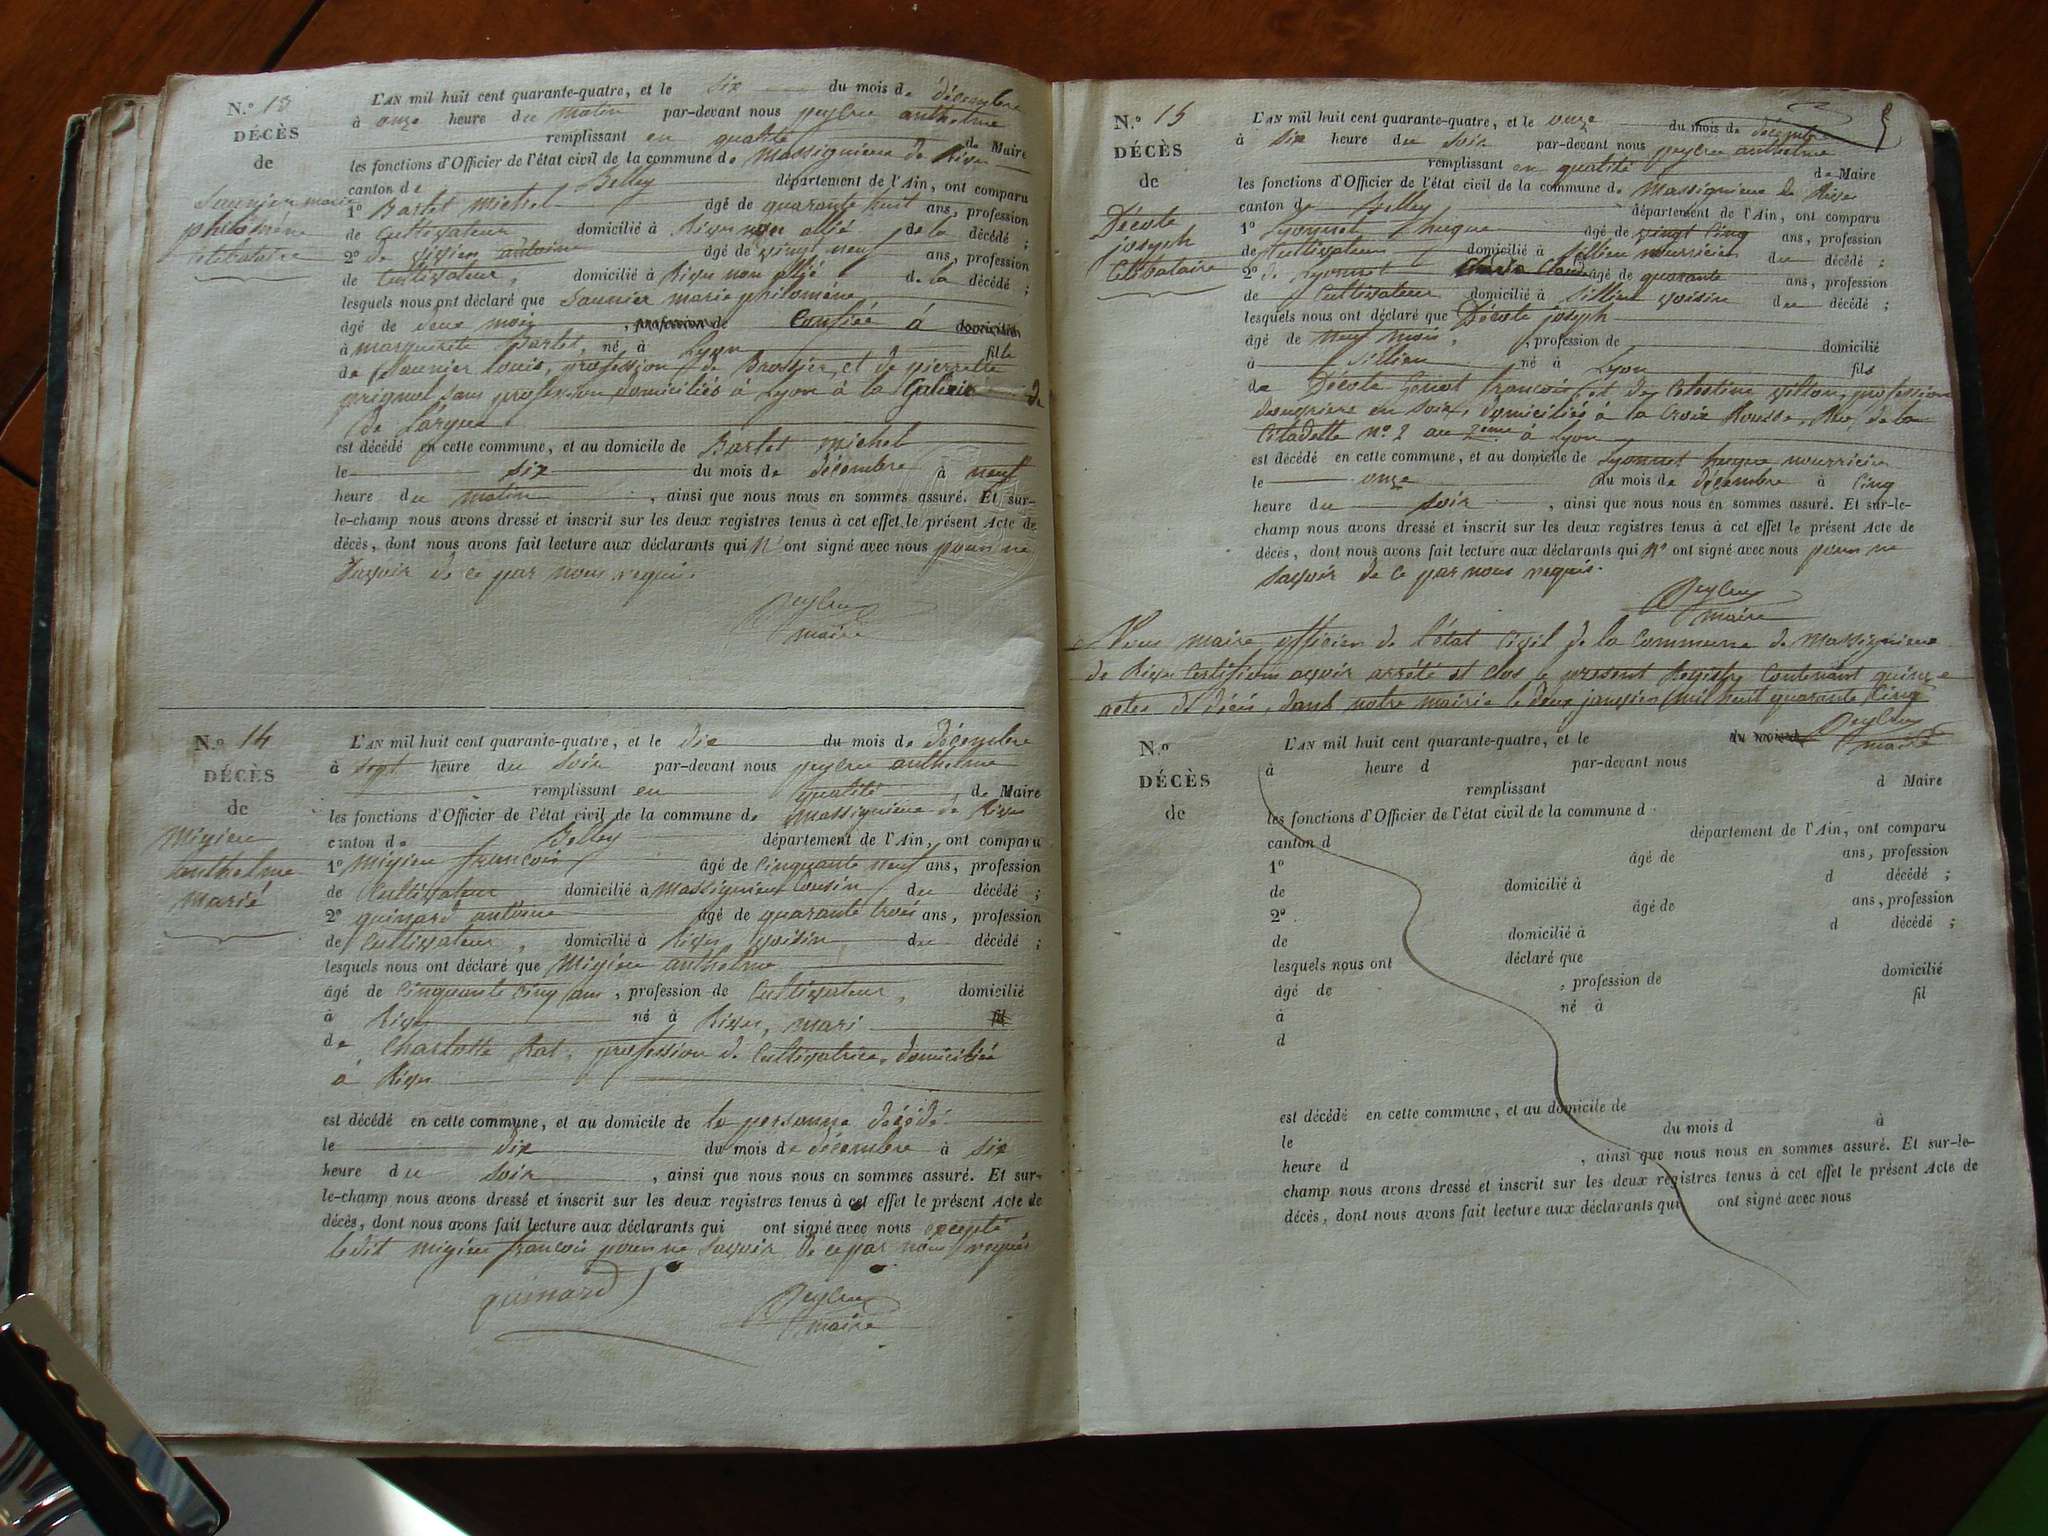 N.° 13
DÉCÈS
de
Saunier marie
philomène
célibataire
L'AN mil huit cent quarante-quatre, et le six du mois de décembre
à onze heure du matin par-devant nous peyleu anthelme
remplissant en qualité de Maire
les fonctions d'Officier de l'état civil de la commune de Massignieu de Rives
canton de Belley département de l'Ain, ont comparu
1° Bartet Michel âgé de quarante huit ans, profession
de Cultivateur domicilié à Rives non allié de la décédé ;
2° de antoine âgé de vingt neuf ans, profession
de Cultivateur, domicilié à Rives non allié de la décédé ;
lesquels nous ont déclaré que Saunier marie philomène
âgé de deux mois, profession de Confiée à domicilié
à marguerite Bartet, né à Lyon fille
de Saunier louis, profession de Brossier, et de pierrette
prignot sans profession domiciliés à Lyon à la Galerie de
de l'argue
est décédé en cette commune, et au domicile de Bartet Michel
le six du mois de décembre à neuf
heure du matin, ainsi que nous nous en sommes assuré. Et sur-
le-champ nous avons dressé et inscrit sur les deux registres tenus à cet effet le présent Acte de
décès, dont nous avons fait lecture aux déclarants qui N' ont signé avec nous pour ne
savoir de ce par nous requis.
Peyleu
maire
N.° 14
DÉCÈS
de
Migieu
anthelme
Marié
L'AN mil huit cent quarante-quatre, et le dix du mois de décembre
à sept heure du soir par-devant nous peyleu anthelme
remplissant en qualité de Maire
les fonctions d'Officier de l'état civil de la commune de Massignieu de Rives
canton de Belley département de l'Ain, ont comparu
1° Migieu françois âgé de cinquante neuf ans, profession
de Cultivateur domicilié à Massignieu Cousin du décédé ;
2° guinard antoine âgé de quarante trois ans, profession
de Cultivateur, domicilié à Rives, voisin du décédé ;
lesquels nous ont déclaré que Migieu anthelme
âgé de cinquante cinq ans, profession de Cultivateur, domicilié
à Rives né à Rives, mari fil
de Charlotte Rat, profession de Cultivatrice, domiciliée
à Rives
est décédé en cette commune, et au domicile de la personne décédé
le dix du mois de décembre à six
heure du soir, ainsi que nous nous en sommes assuré. Et sur-
le-champ nous avons dressé et inscrit sur les deux registres tenus à cet effet le présent Acte de
décès, dont nous avons fait lecture aux déclarants qui ont signé avec nous excepté
ledit Migieu françois pour ne savoir de ce par nous requis
guinard
Peyleu
maire
N.° 15
DÉCÈS
de
Décote
joseph
Célibataire
L'AN mil huit cent quarante-quatre, et le onze du mois de décembre
à six heure du soir par-devant nous peyleu anthelme
remplissant en qualité de Maire
les fonctions d'Officier de l'état civil de la commune de Massignieu de Rives
canton de Belley département de l'Ain, ont comparu
1° Lyonnet hugue âgé de vingt cinq ans, profession
de Cultivateur domicilié à Sillieu nourricier du décédé ;
2° de Lyonnet Claude âgé de quarante ans, profession
de Cultivateur domicilié à Sillieu voisin du décédé ;
lesquels nous ont déclaré que Décote joseph
âgé de neuf mois, profession de domicilié
à Sillieu né à Lyon fils
de Décote françois, et de Celestine, profession
en soie, domiciliés à la Croix Rousse, Rue de la
Citadelle n° 2 au 2ème à Lyon
est décédé en cette commune, et au domicile de Lyonnet hugue nourricier
le onze du mois de décembre à Cinq
heure du soir, ainsi que nous nous en sommes assuré. Et sur-le-
champ nous avons dressé et inscrit sur les deux registres tenus à cet effet le présent Acte de
décès, dont nous avons fait lecture aux déclarants qui N' ont signé avec nous pour ne
savoir de ce par nous requis.
Peyleu
maire
Nous maire officier de l'état Civil de la Commune de Massignieu
de Rives Certifions avoir arrêté et Clos le present Registre Contenant quinze
actes de décès, dans notre mairie le deux janvier mil huit quarante Cinq
Peyleu
maire
N.°
DÉCÈS
de
L'AN mil huit cent quarante-quatre, et le du mois d
à heure d par-devant nous
remplissant d Maire
les fonctions d'Officier de l'état civil de la commune d
canton d département de l'Ain, ont comparu
1° âgé de ans, profession
de domicilié à d décédé ;
2° âgé de ans, profession
de domicilié à d décédé ;
lesquels nous ont déclaré que
âgé de , profession de domicilié
à né à fil
d
est décédé en cette commune, et au domicile de
le du mois d à
heure d , ainsi que nous nous en sommes assuré. Et sur-le-
champ nous avons dressé et inscrit sur les deux registres tenus à cet effet le présent Acte de
décès, dont nous avons fait lecture aux déclarants qui ont signé avec nous